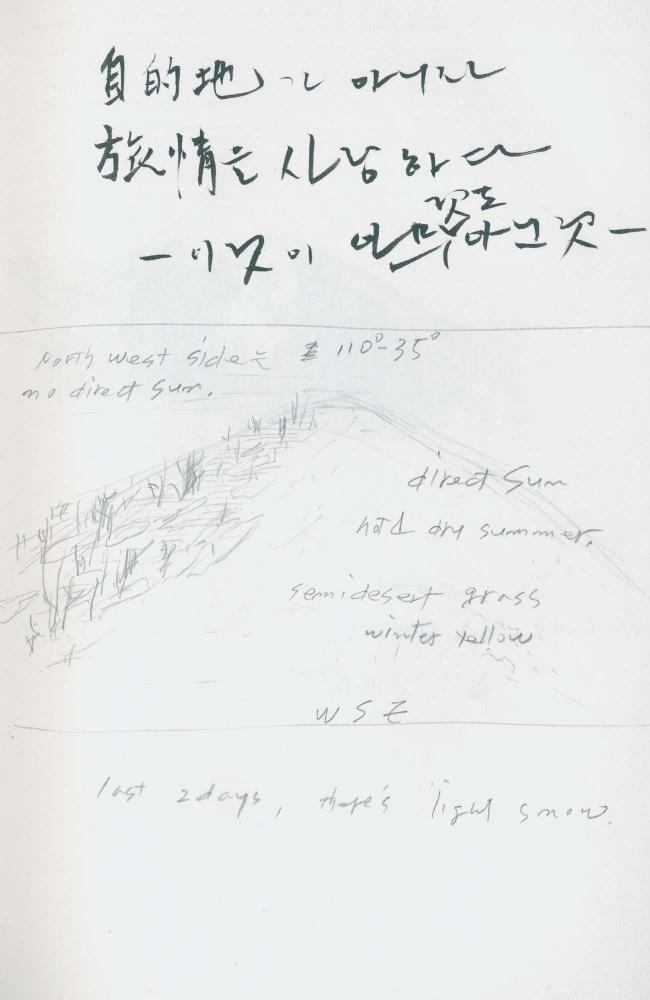 目的地가 아니라
旅情을 사랑하다
것도
— 이것이 아 그것 —
North west side는 110°-35°
no direct sun.
direct Sun
hot & dry summer.
semidesert grass
winter yellow
W S E
last 2days, there's light snow.